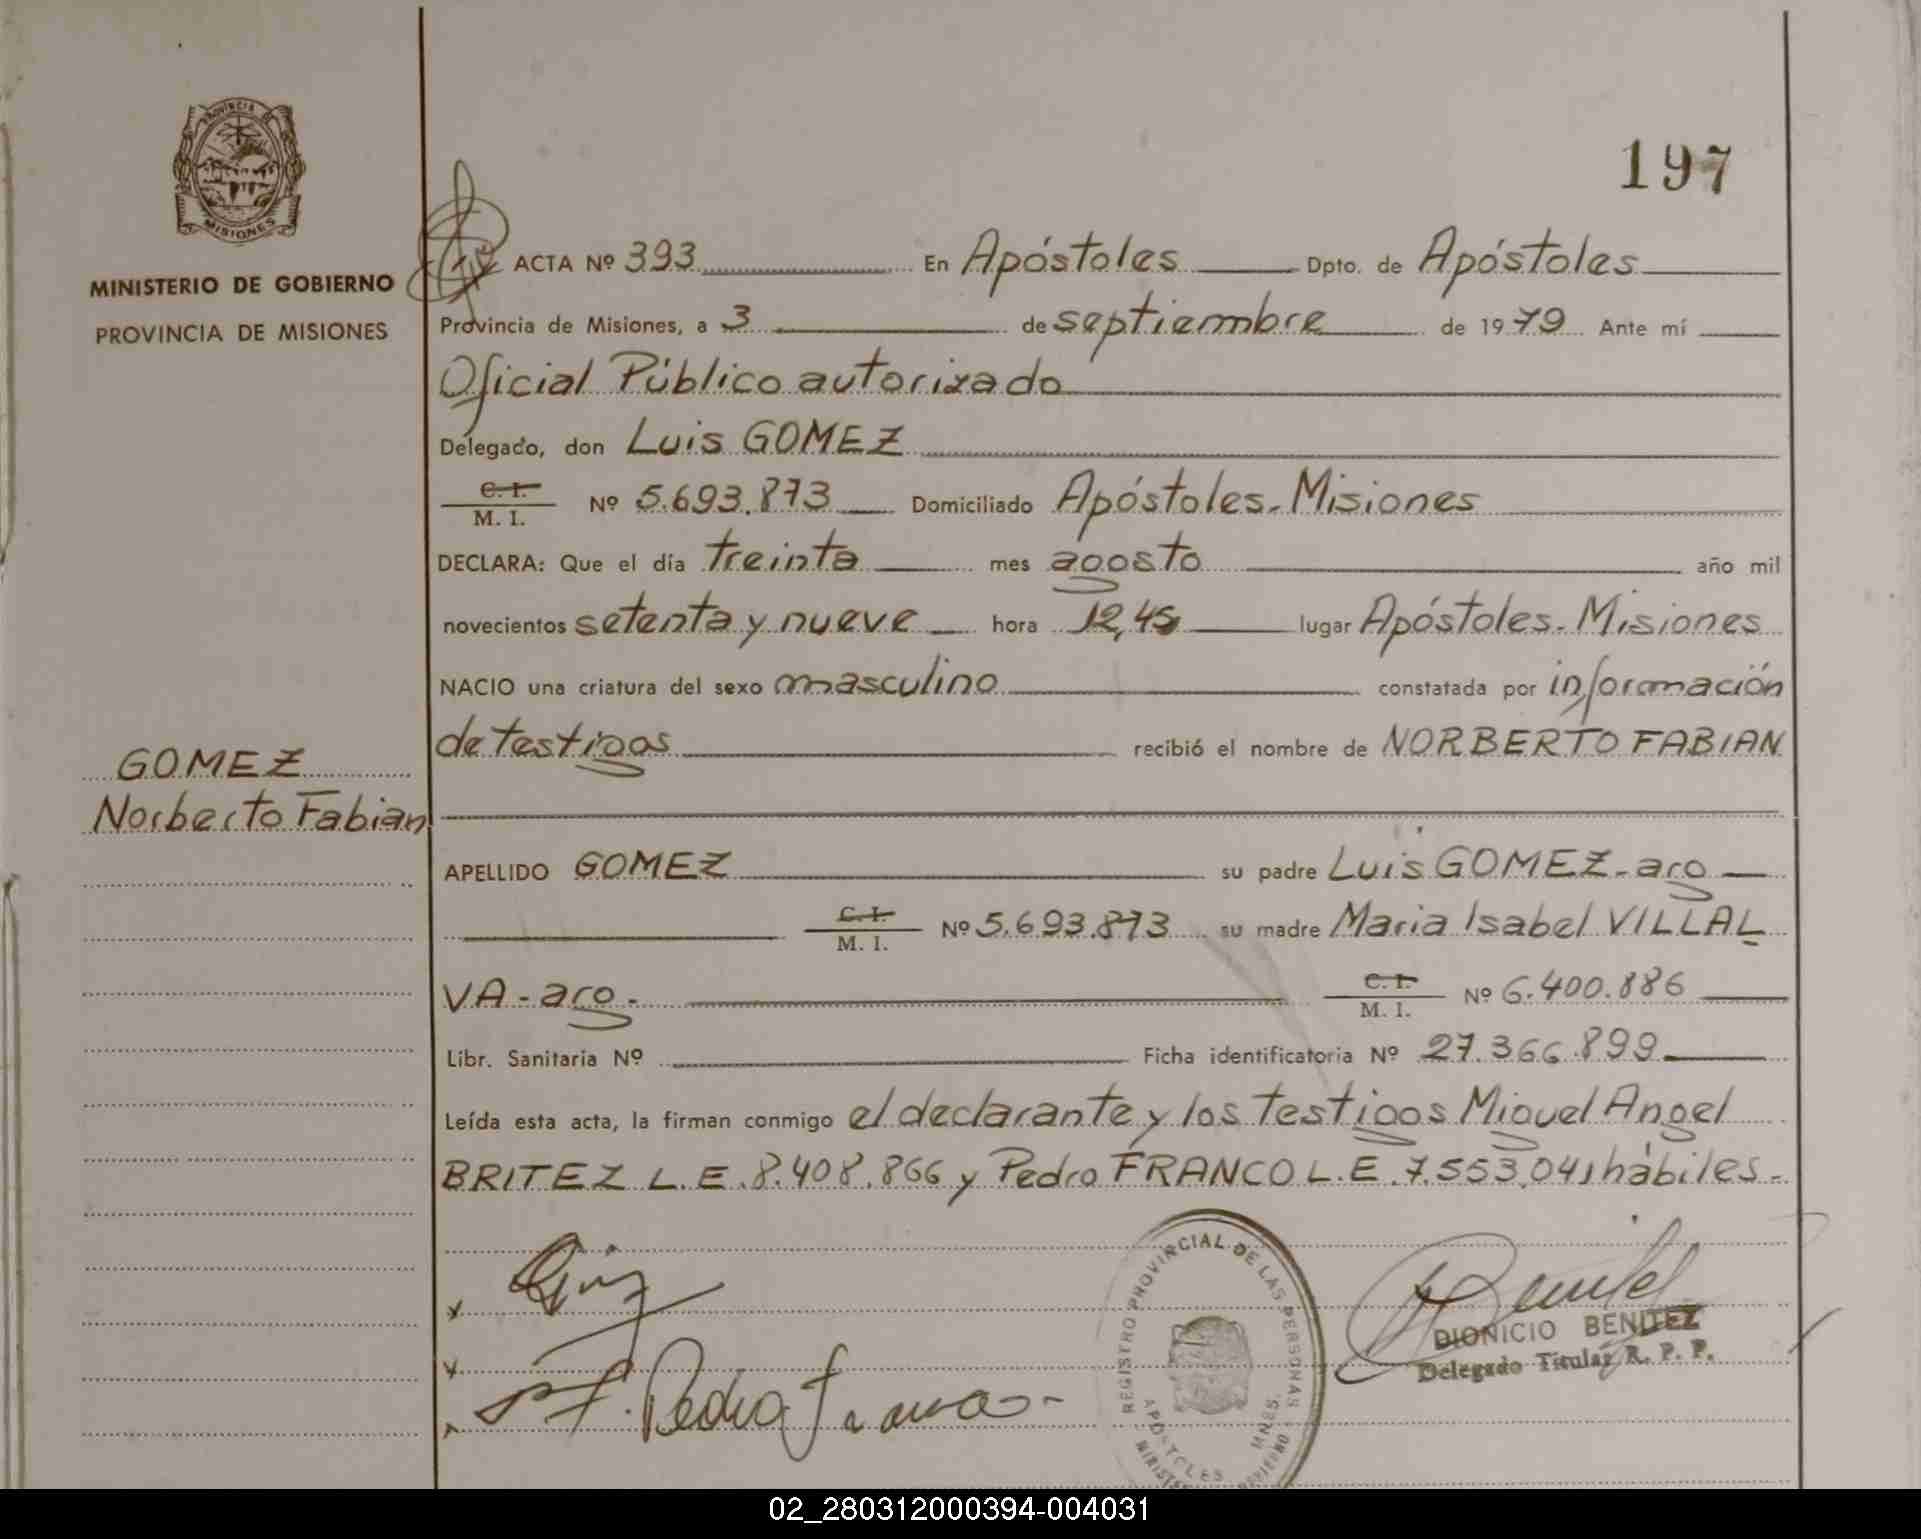 PROVINCIA DE
MISIONES
MINISTERIO DE GOBIERNO
PROVINCIA DE MISIONES
197
ACTA Nº 393 En Apóstoles Dpto. de Apóstoles
Provincia de Misiones, a 3 de septiembre de 1979 Ante mí
Oficial Público autorizado
Delegado, don Luis GOMEZ
C. I.
M. I. Nº 5.693.873 Domiciliado Apóstoles. Misiones
DECLARA: Que el día treinta mes agosto año mil
novecientos setenta y nueve hora 12,45 lugar Apóstoles. Misiones
NACIO una criatura del sexo masculino constatada por información
de testigos recibió el nombre de NORBERTO FABIAN
GOMEZ
Norberto Fabian
APELLIDO GOMEZ su padre Luis GOMEZ - arg
C. I.
M. I. Nº 5.693.873 su madre Maria Isabel VILLAL
VA - arg. C. I.
M. I. Nº 6.400.886
Libr. Sanitaria Nº Ficha identificatoria Nº 27.366.899
Leída esta acta, la firman conmigo el declarante y los testigos Miguel Angel
BRITEZ L.E. 8.408.866 y Pedro FRANCO L.E. 7.553.041 hábiles.-
Pedro Franco -
REGISTRO PROVINCIAL DE LAS PERSONAS
APOSTOLES MNES.
DIONICIO BENITEZ
Delegado Titular R. P. P.
02_280312000394-004031